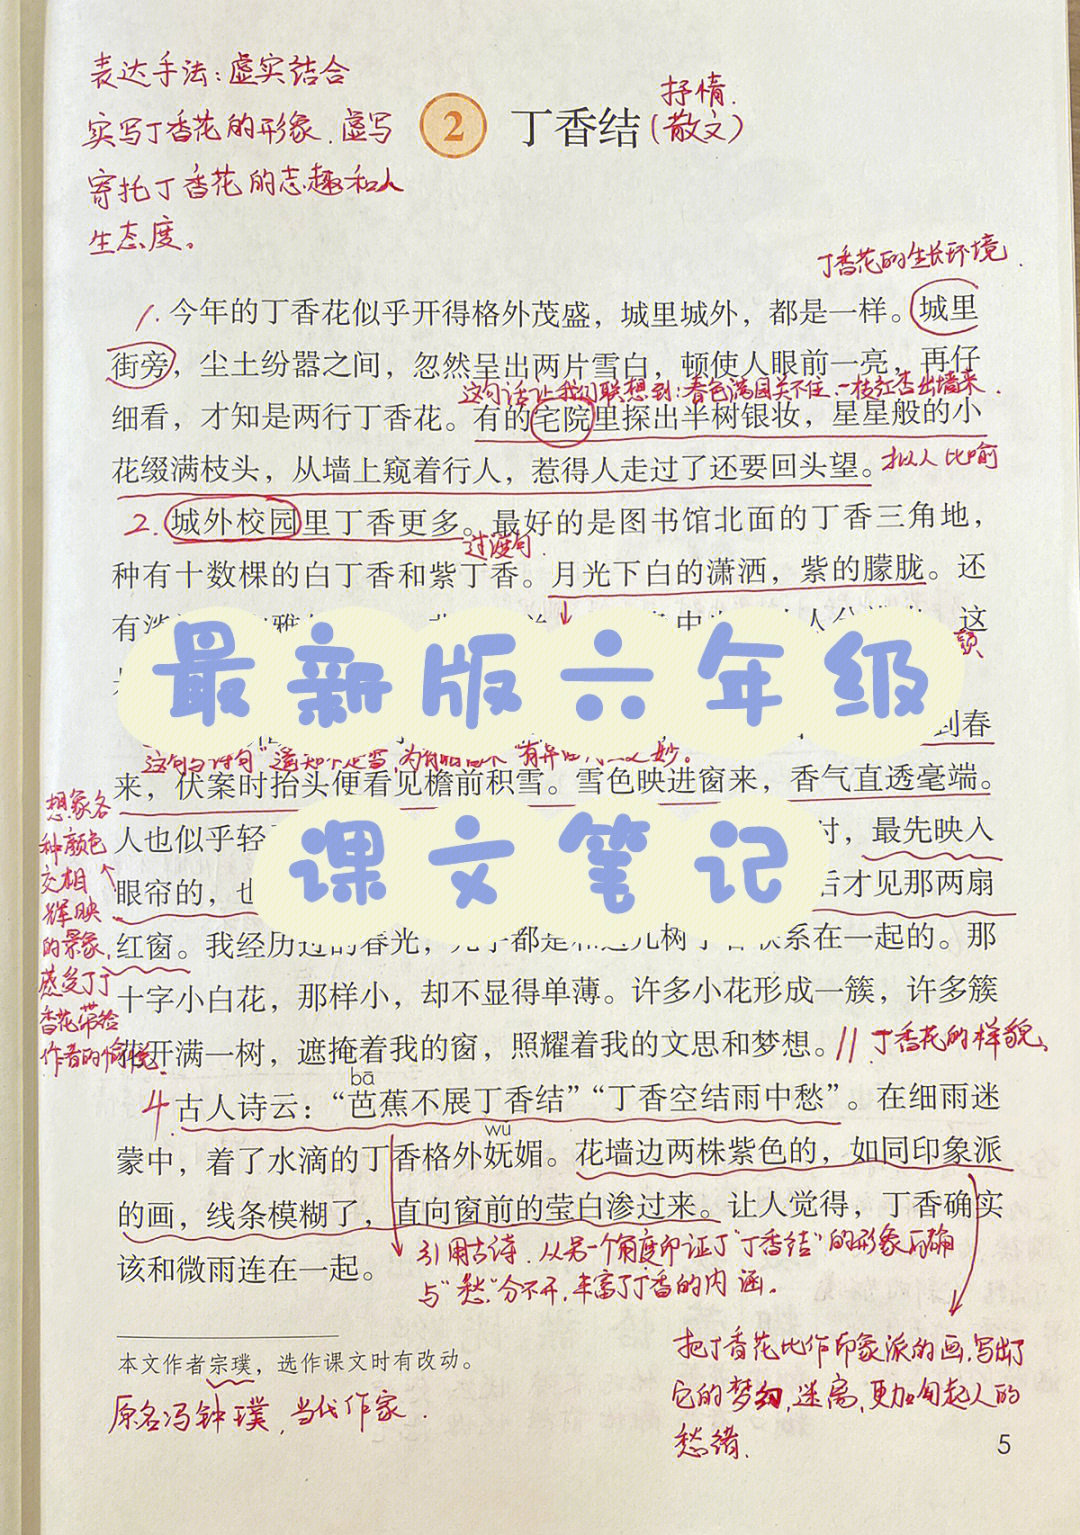 表达手法：虚实结合
实写丁香花的形象，虚写
寄托丁香花的志趣和人
生态度。
2 丁香结
抒情
(散文)
丁香花的生长环境
1. 今年的丁香花似乎开得格外茂盛，城里城外，都是一样。城里
街旁，尘土纷嚣之间，忽然呈出两片雪白，顿使人眼前一亮，再仔
这句话让我们联想到：春色满园关不住，一枝红杏出墙来
细看，才知是两行丁香花。有的宅院里探出半树银妆，星星般的小
花缀满枝头，从墙上窥着行人，惹得人走过了还要回头望。
拟人 比喻
2. 城外校园里丁香更多。最好的是图书馆北面的丁香三角地，
过渡句
种有十数棵的白丁香和紫丁香。月光下白的潇洒，紫的朦胧。还
有
这
最新版六年级
到春
来，伏案时抬头便看见檐前积雪。雪色映进窗来，香气直透毫端。
人也似乎轻
课文笔记
时，最先映入
眼帘的，也
后才见那两扇
红窗。我经历过的春光，几乎都是和这几树丁香联系在一起的。那
十字小白花，那样小，却不显得单薄。许多小花形成一簇，许多簇
花开满一树，遮掩着我的窗，照耀着我的文思和梦想。
丁香花的样貌
想象各
种颜色
交相
辉映
的景象，
感受丁
香花带给
作者的愉悦
bā
4 古人诗云：“芭蕉不展丁香结”“丁香空结雨中愁”。在细雨迷
wǔ
蒙中，着了水滴的丁香格外妩媚。花墙边两株紫色的，如同印象派
的画，线条模糊了，直向窗前的莹白渗过来。让人觉得，丁香确实
该和微雨连在一起。
引用古诗，从另一个角度印证了“丁香结”的形象的确
与“愁”分不开，丰富了丁香的内涵。
把丁香花比作印象派的画，写出了
它的梦幻，迷离，更加勾起人的
愁绪
本文作者宗璞，选作课文时有改动。
原名冯钟璞，当代作家
5